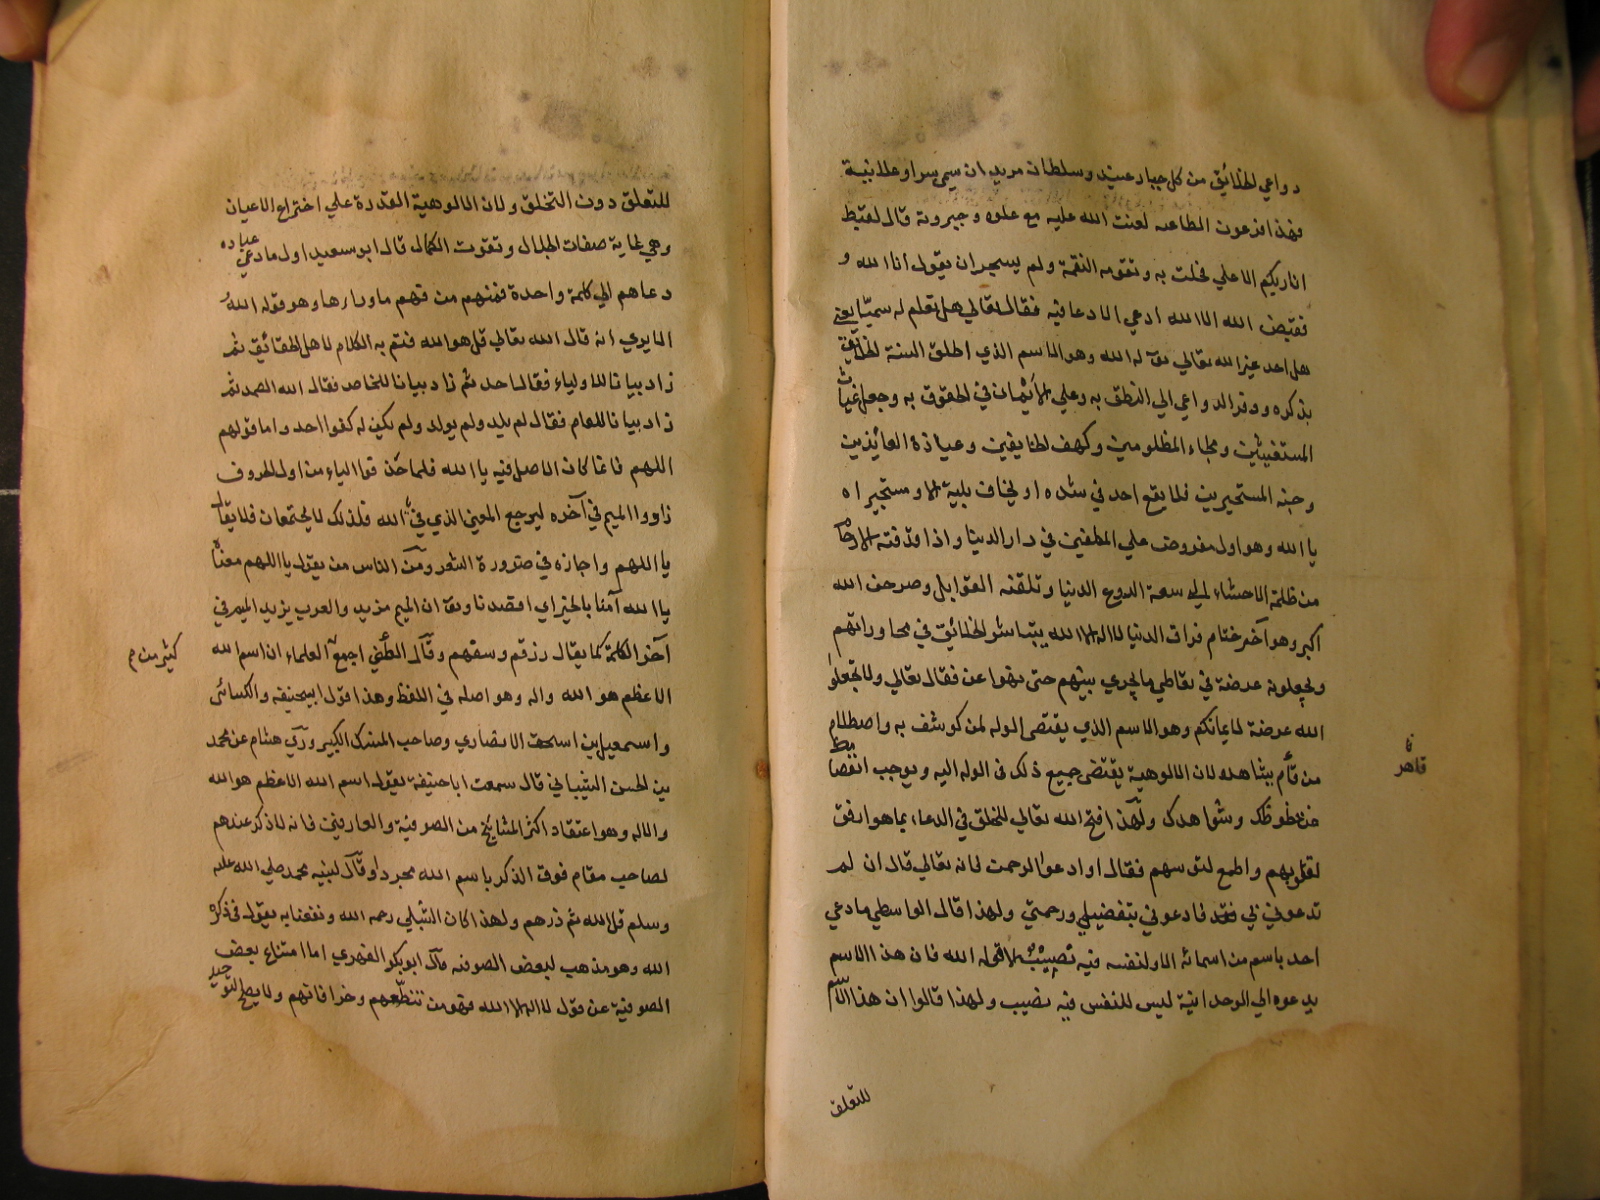 دواعي الخلائق من كل جبار عنيد وسلطان مريد ان يسمى سرا وعلانية
فهذا فرعون الطاعيه لعنت الله عليه مع علوه وجبروته قال لقبط
انا ربكم الاعلي فحلت به ونقوله النقمة ولم يستجران يقول انا الله و
فقبض الله الا الله ادعي الادعا فيه فقال تعالي هل تعلم له سميّا يعني
هل احد غير الله تعالي يقا له الله وهو الاسم الذي اطلق السنة الخلائق
بذكره ووفر الدواعي الي النطق به وعلي الأيمان في الحقوق به وجعل غياث
المستغيثين وملجاء المظلومين وكهف الخايفين وعياذة العائذين
وجنه المستجيرين فلا يقع احد في شده او يخاف بلية الا ومستجيراه
يا الله وهو اول مفروض علي المكلفين في دار الدنيا واذا قذفته الارحام
من ظلمة الاحشاء الي سعة الدوع الدنيا وتلقنه القوابل وصرحن الله
اكبر وهو آخر ختام فراق الدنيا لا اله الا الله يتباشر الخلائق في محاوراتهم
ويجعلونه عرضة في تعاطي ما يجري بينهم حتى نهوا عن فقال تعالي ولا تجعلوا
الله عرضة لايمانكم وهو الاسم الذي يقتضى الوله لمن كوشف به واصطلام
من قام بشاهده لان الالوهية يقتضى جميع ذلك في الوله اليه ويوجب انقطاعا
عن حظوظك وشواهدك ولهذا افتح الله تعالي للخلق في الدعاء بما هو ارفق
لقلوبهم واطمع لنفوسهم فقال او ادعوا الرحمن لانه تعالي قال ان لم
تدعوني بي فقد فادعوني بتفضيلي ورحمتي ولهذا قال الواسطي ما دعي
احد باسم من اسمائه الا ولنفسه فيه نصيب الا قوله الله فان هذا الاسم
يدعوه الي الوحدانية ليس للنفس فيه نصيب ولهذا قالوا ان هذا الاسم
للتعلق
قاهر
للتعلق دون التخلق ولان الالوهية القدرة علي اختراع الاعيان
وهي غاية صفات الجلال ونعوت الكمال قال ابو سعيد اول ما دعي عباده
دعاهم الي كلمة واحدة فمن فهم من فهم ماوراءها وهو قوله الله
الا يري انه قال الله تعالي قل هو الله فتم به الكلام لاهل الحقائق ثم
زاد بيانا للاولياء فقال احد ثم زاد بيانا للخاص فقال الله الصمد ثم
زاد بيانا للعام فقال لم يلد ولم يولد ولم يكن له كفوا احد واما قولهم
اللهم فانما كان الاصل فيه يا الله فلما حذفوا الياء من اول الحروف
زادوا الميم في آخره ليرجع المعني الذي في الله فلذلك لا يجتمعان فلا يقال
يا اللهم واجازه في ضرورة الشعر ومن الناس من يقول يا اللهم معناه
يا الله آمنا بالخير اي اقصدنا ويقا ان الميم مزيد والعرب يزيد الميم في
آخر الكلمة كما يقال رزقم وستهم وقال الطفي اجمع العلماء ان اسم الله
كثير من م
الاعظم هو الله واله وهو اصله في اللفظ وهذا قول ابيحنيفه والكسائي
واسمعيل بن اسحق الانصاري وصاحب المشكل الكبير وروي هشام عن محمد
بن الحسن الشيباني قال سمعت اباحنيفة يقول اسم الله الاعظم هو الله
والاله وهو اعتقاد اكثر المشايخ من الصوفية والعارفين فانه لا ذكر عندهم
لصاحب مقام فوق الذكر باسم الله مجردا وقال لنبيه محمد صلي الله عليه
وسلم قل الله ثم ذرهم ولهذا كان الشبلي رحمه الله ونفعنا به يقول في ذكره
الله وهو مذهب لبعض الصوفيه قال ابو بكر الفهري اما امتناع بعض
الصوفية عن قول لا اله الا الله فهو من تنطعهم وخرافاتهم ولا يصح التوحيد